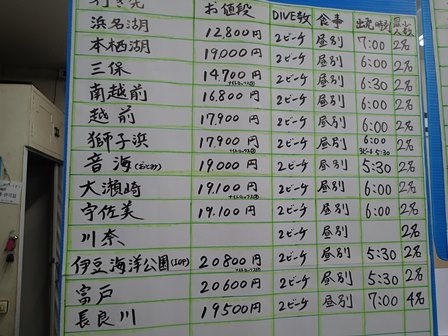 行き先 お値段 DIVE数 食事 出発時刻 最少人数
浜名湖 12,800円 2ビーチ 昼別 7:00 2名
本栖湖 19,000円 2ビーチ 昼別 6:00 2名
三保 14,700円 2ビーチ 昼別 6:30 2名
南越前 16,800円 2ビーチ 昼別 6:00 2名
越前 17,900円 2ビーチ 昼別 6:00 2名
獅子浜 17,900円 2ビーチ 昼別 6:00 2名
3ビーチ 5:30
音海(おとみ) 19,000円 2ビーチ 昼別 5:30 2名
大瀬崎 19,100円 2ビーチ 昼別 6:00 2名
宇佐美 19,100円 2ビーチ 昼別 6:00 2名
川奈 2ビーチ 昼別 2名
伊豆海洋公園(IOP) 20800円 2ビーチ 昼別 5:30 2名
富戸 20600円 2ビーチ 昼別 5:30 2名
長良川 19500円 2ビーチ 昼別 7:00 4名